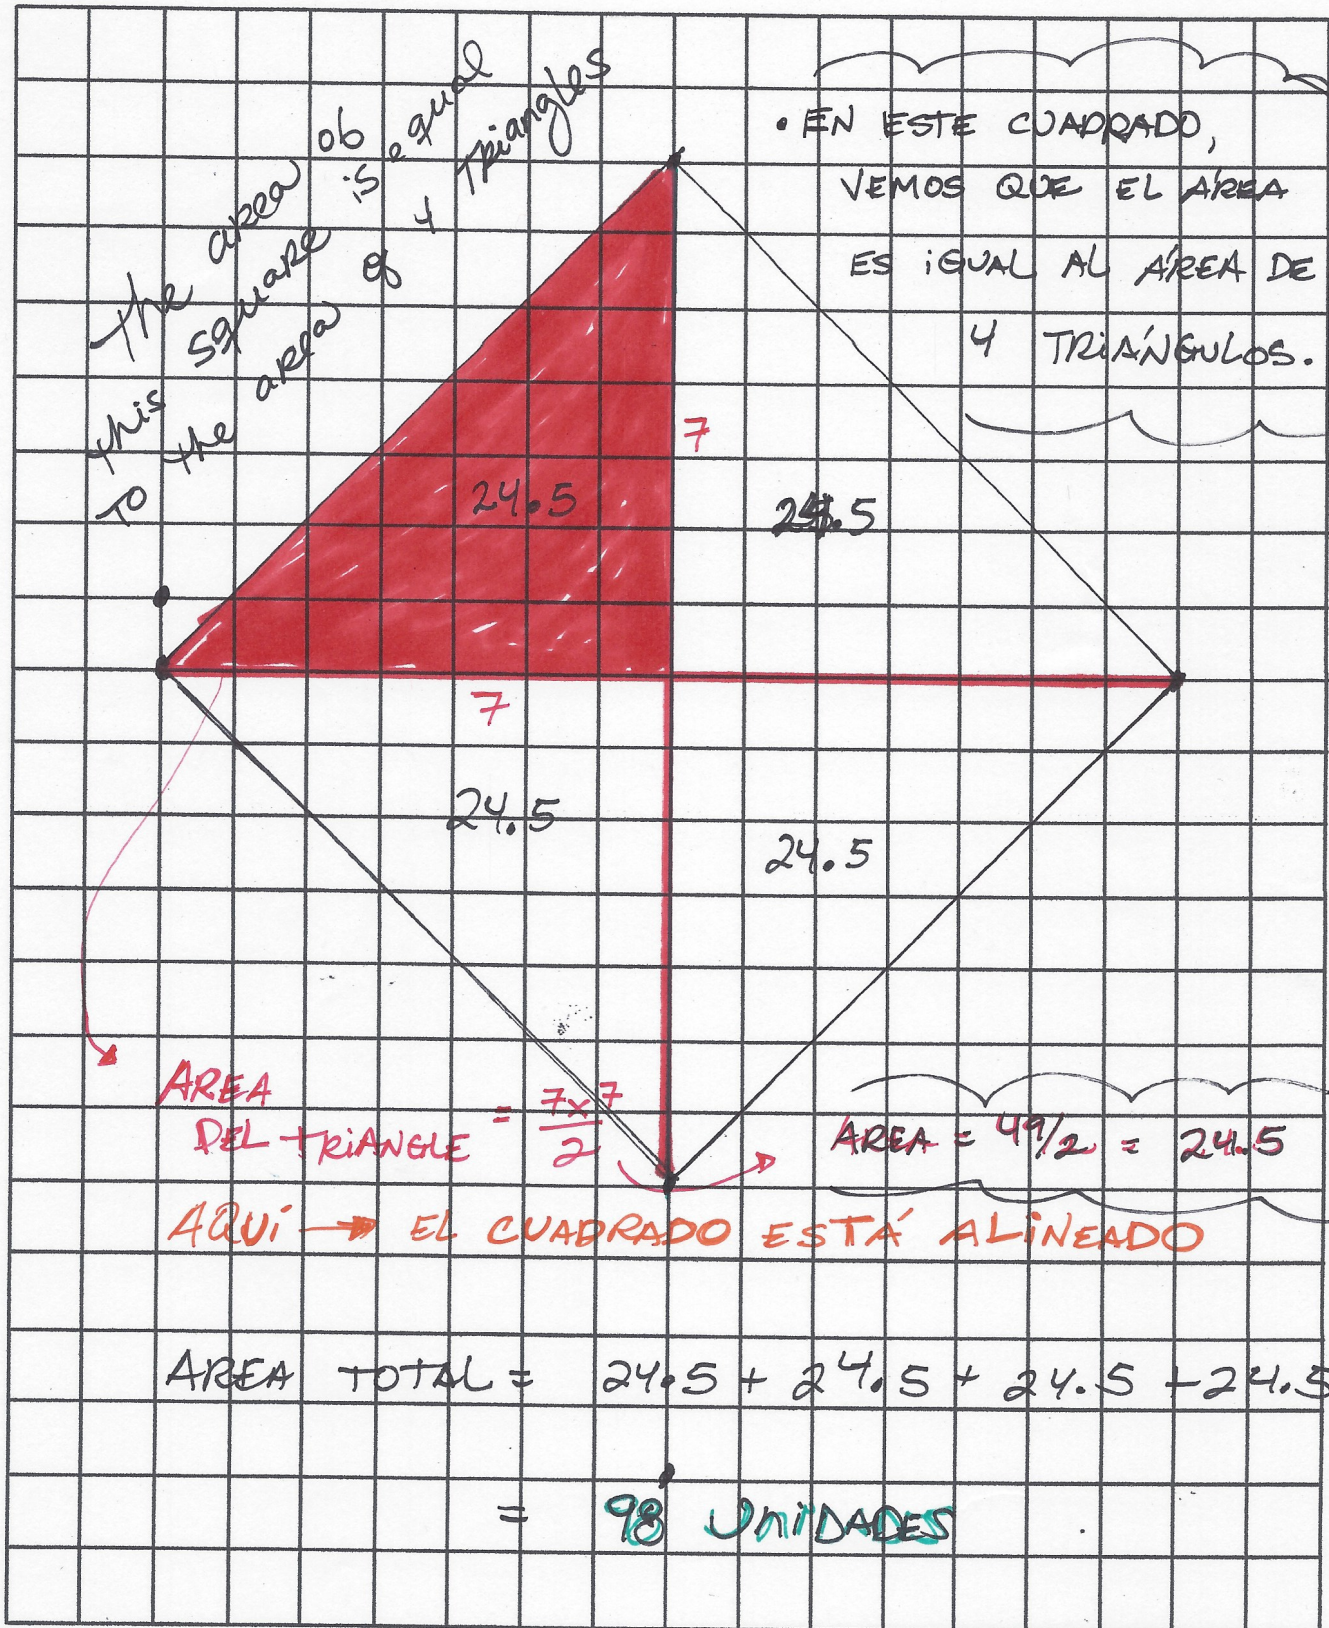 the area ob
this square is equal
to the area of 4 triangles
• EN ESTE CUADRADO,
VEMOS QUE EL ÁREA
ES IGUAL AL ÁREA DE
4 TRIÁNGULOS.
7
24.5
7
24.5
24.5
AREA
DEL TRIANGLE = 7x7/2
AREA = 49/2 = 24.5
AQUÍ → EL CUADRADO ESTÁ ALINEADO
AREA TOTAL = 24.5 + 24.5 + 24.5 + 24.5
= 98 UNIDADES